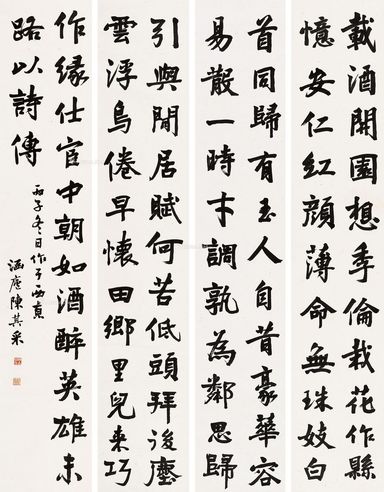 載酒開園想季倫栽花作縣
憶安仁紅顏薄命無珠妓白
首同歸有玉人自昔豪華容
易散一時才調孰為鄰思歸
引與閒居賦何苦低頭拜後塵
雲浮鳥倦早懷田鄉里兒來巧
作緣仕宦中朝如酒醉英雄末
路以詩傳
丙子冬日作于西京
涵廬陳其采